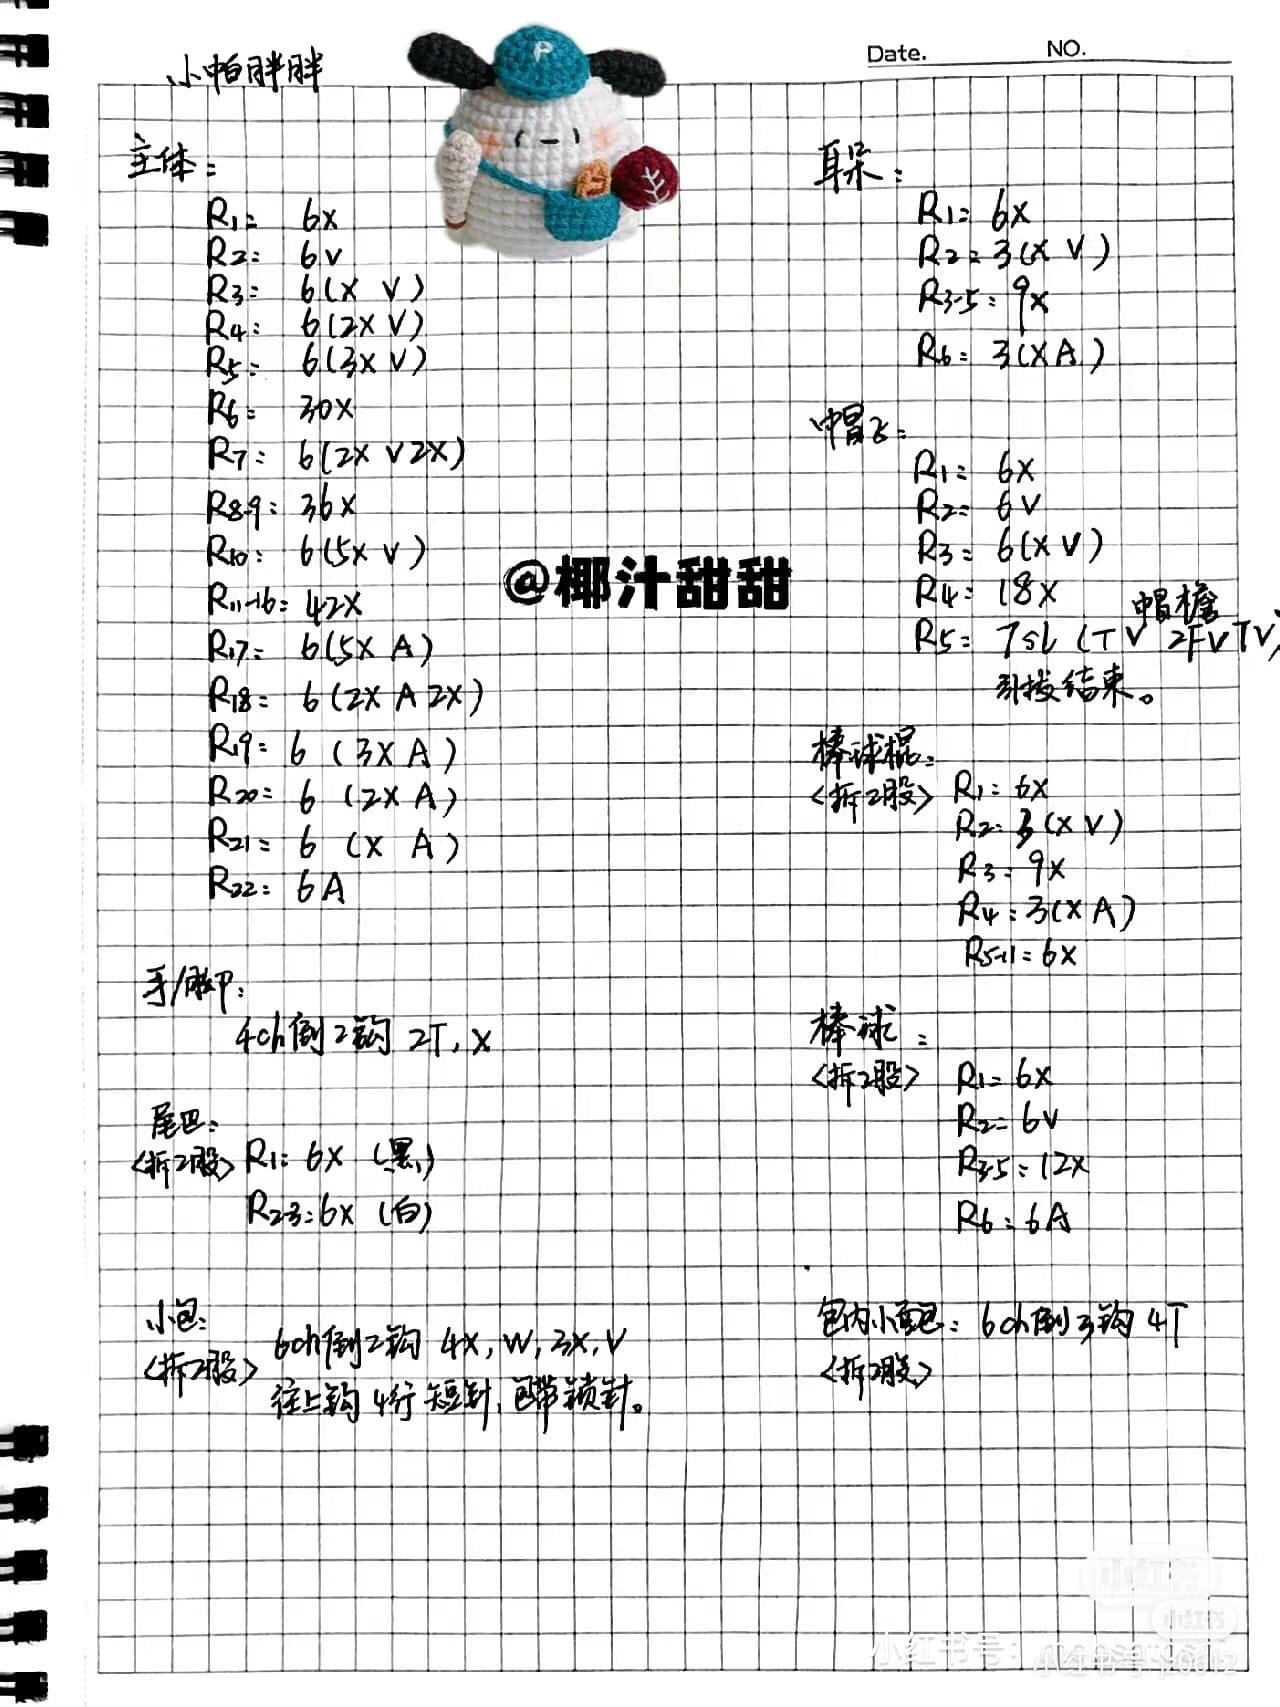 小帕胖胖
P
Date. NO.
主体:
R1: 6X
R2: 6V
R3: 6(X V)
R4: 6(2X V)
R5: 6(3X V)
R6: 30X
R7: 6(2X V 2X)
R8-9: 36X
R10: 6(5X V)
R11-16: 42X
R17: 6(5X A)
R18: 6(2X A 2X)
R19: 6 (3X A)
R20: 6 (2X A)
R21: 6 (X A)
R22: 6A
手/脚:
4ch倒2钩 2T, X
尾巴:
<拆2股> R1: 6X (黑)
R2-3: 6X (白)
小包:
<拆2股> 6ch倒2钩 4X, W, 3X, V
往上钩 4行 短针, 包带锁针。
@椰汁甜甜
耳朵:
R1: 6X
R2: 3(X V)
R3-5: 9X
R6: 3(X A)
帽子:
R1: 6X
R2: 6V
R3: 6(X V)
R4: 18X
帽檐
R5: 7sl (T V 2FV TV)
引拔结束。
棒球棍:
<拆2股> R1: 6X
R2: 3(X V)
R3: 9X
R4: 3(X A)
R5-11: 6X
棒球:
<拆2股> R1: 6X
R2: 6V
R3-5: 12X
R6: 6A
包内小面包: 6ch倒3钩 4T
<拆2股>
小红书
小红书
小红书号: